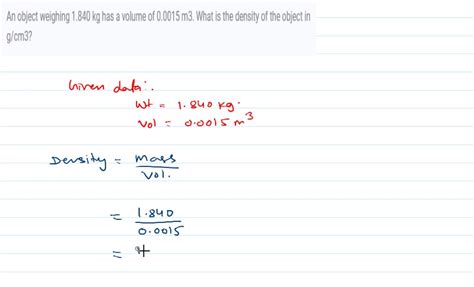 An object weighing 1.840 kg has a volume of 0.0015 m3. What is the density of the object in
g/cm3?
Given data:.
Wt = 1.840 kg.
Vol = 0.0015 m³
Density = Mass
Vol.
= 1.840
0.0015
=